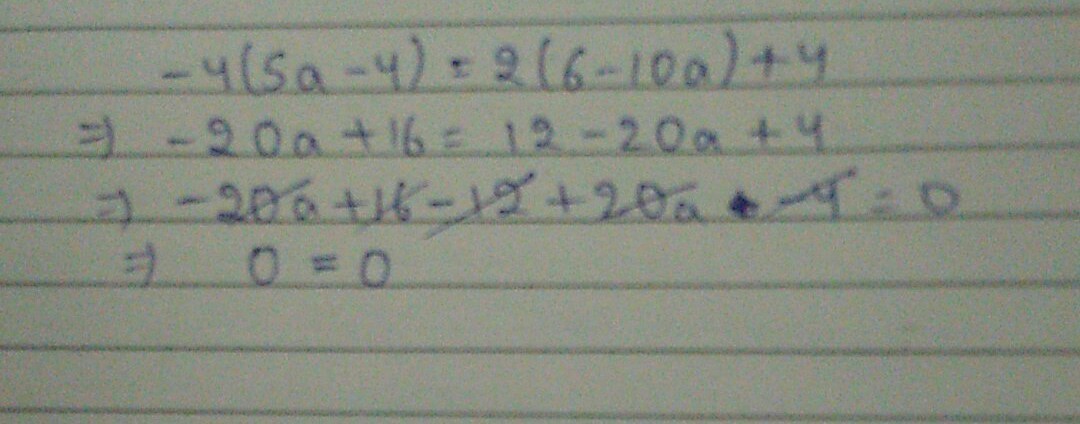 -4(5a-4) = 2(6-10a)+4
⇒ -20a+16 = 12-20a+4
⇒ -20a+16-12+20a-4=0
⇒ 0=0